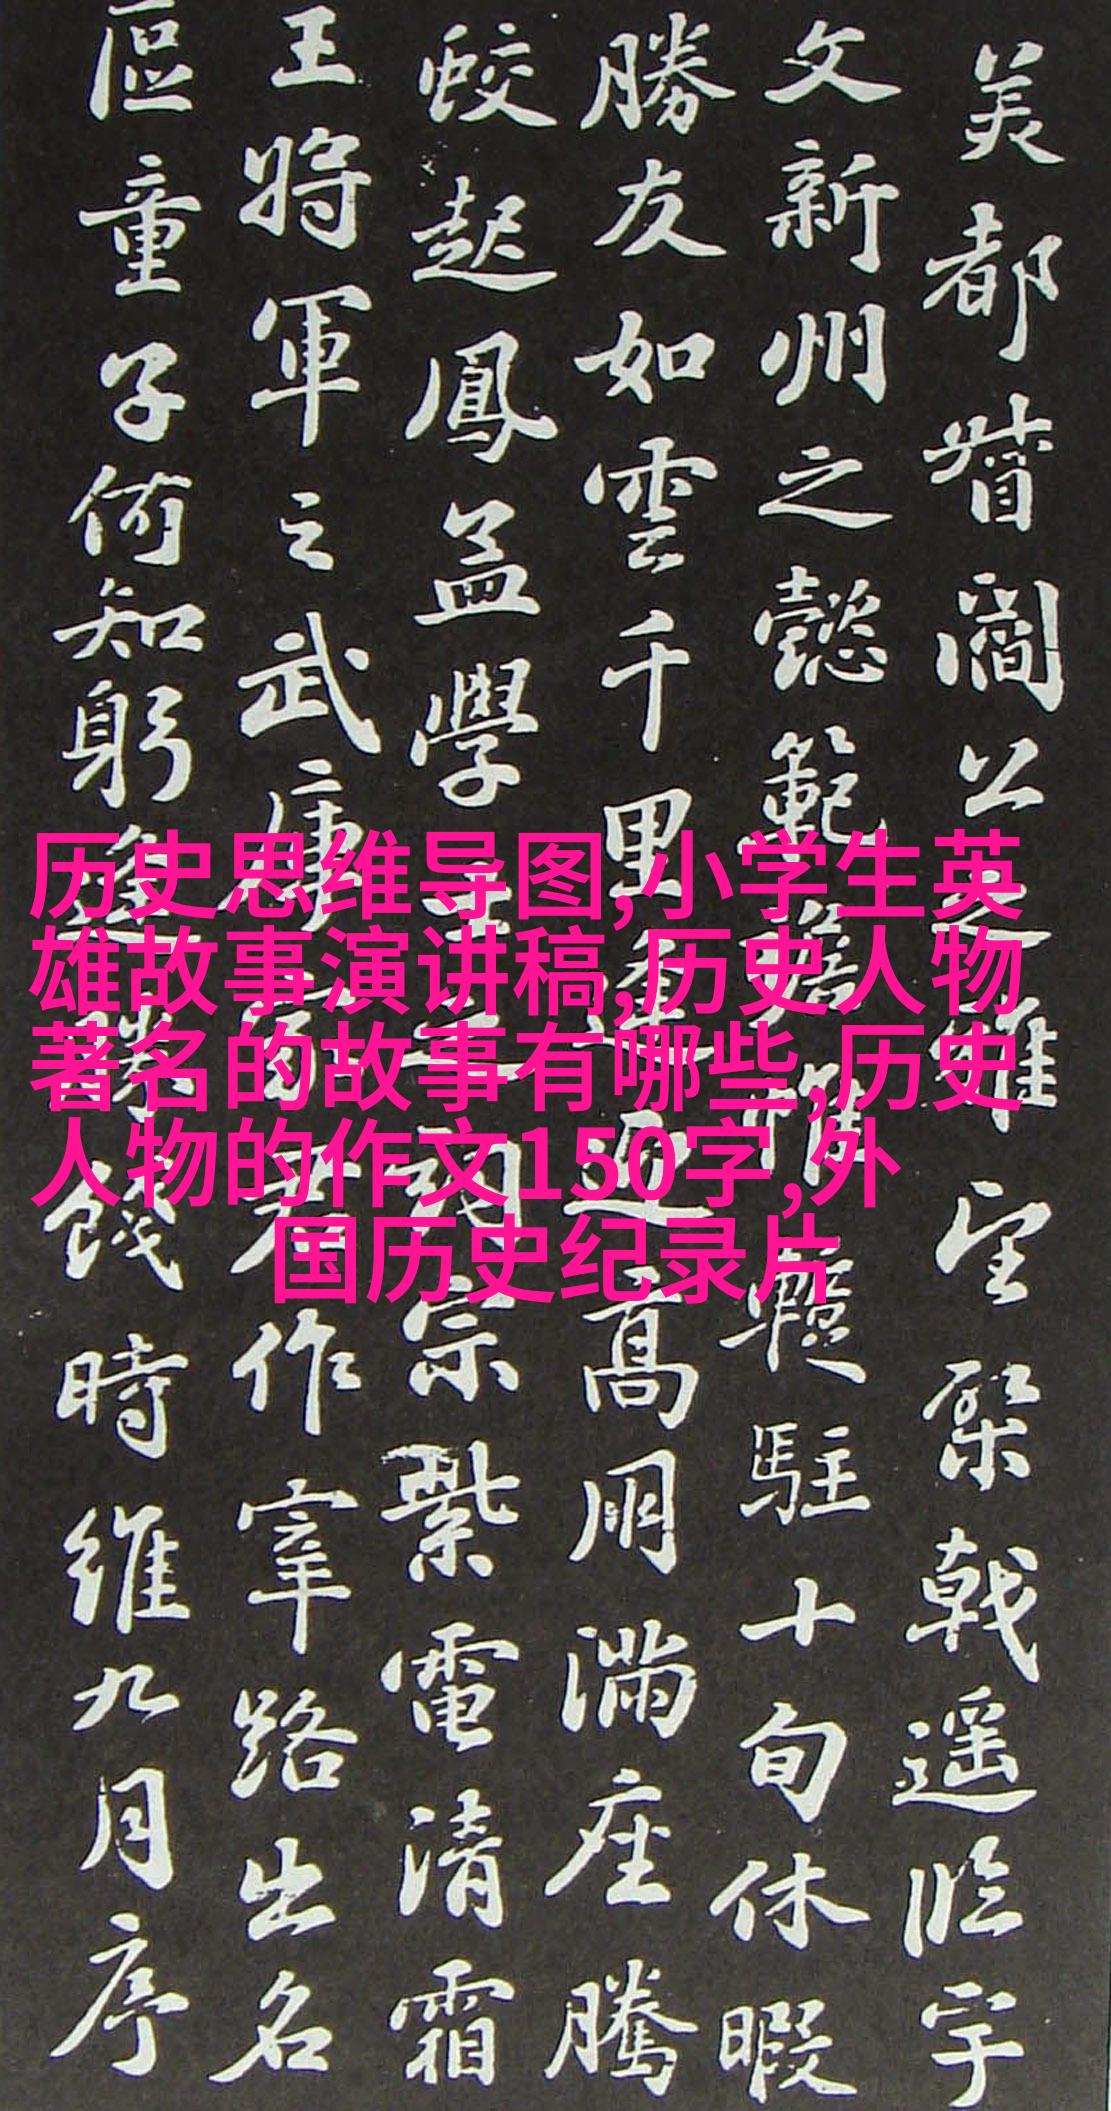 美都督閻公之雅望棨戟遥臨宇
文新州之懿範襜帷暫駐十旬休暇
勝友如雲千里逢迎高朋滿座騰
蛟起鳳孟學士之詞宗紫電清霜
王將軍之武庫家君作宰路出名
區童子何知躬逢勝餞時維九月序
历史思维导图,小学生英
雄故事演讲稿,历史人物
著名的故事有哪些,历史
人物的作文150字,外
国历史纪录片